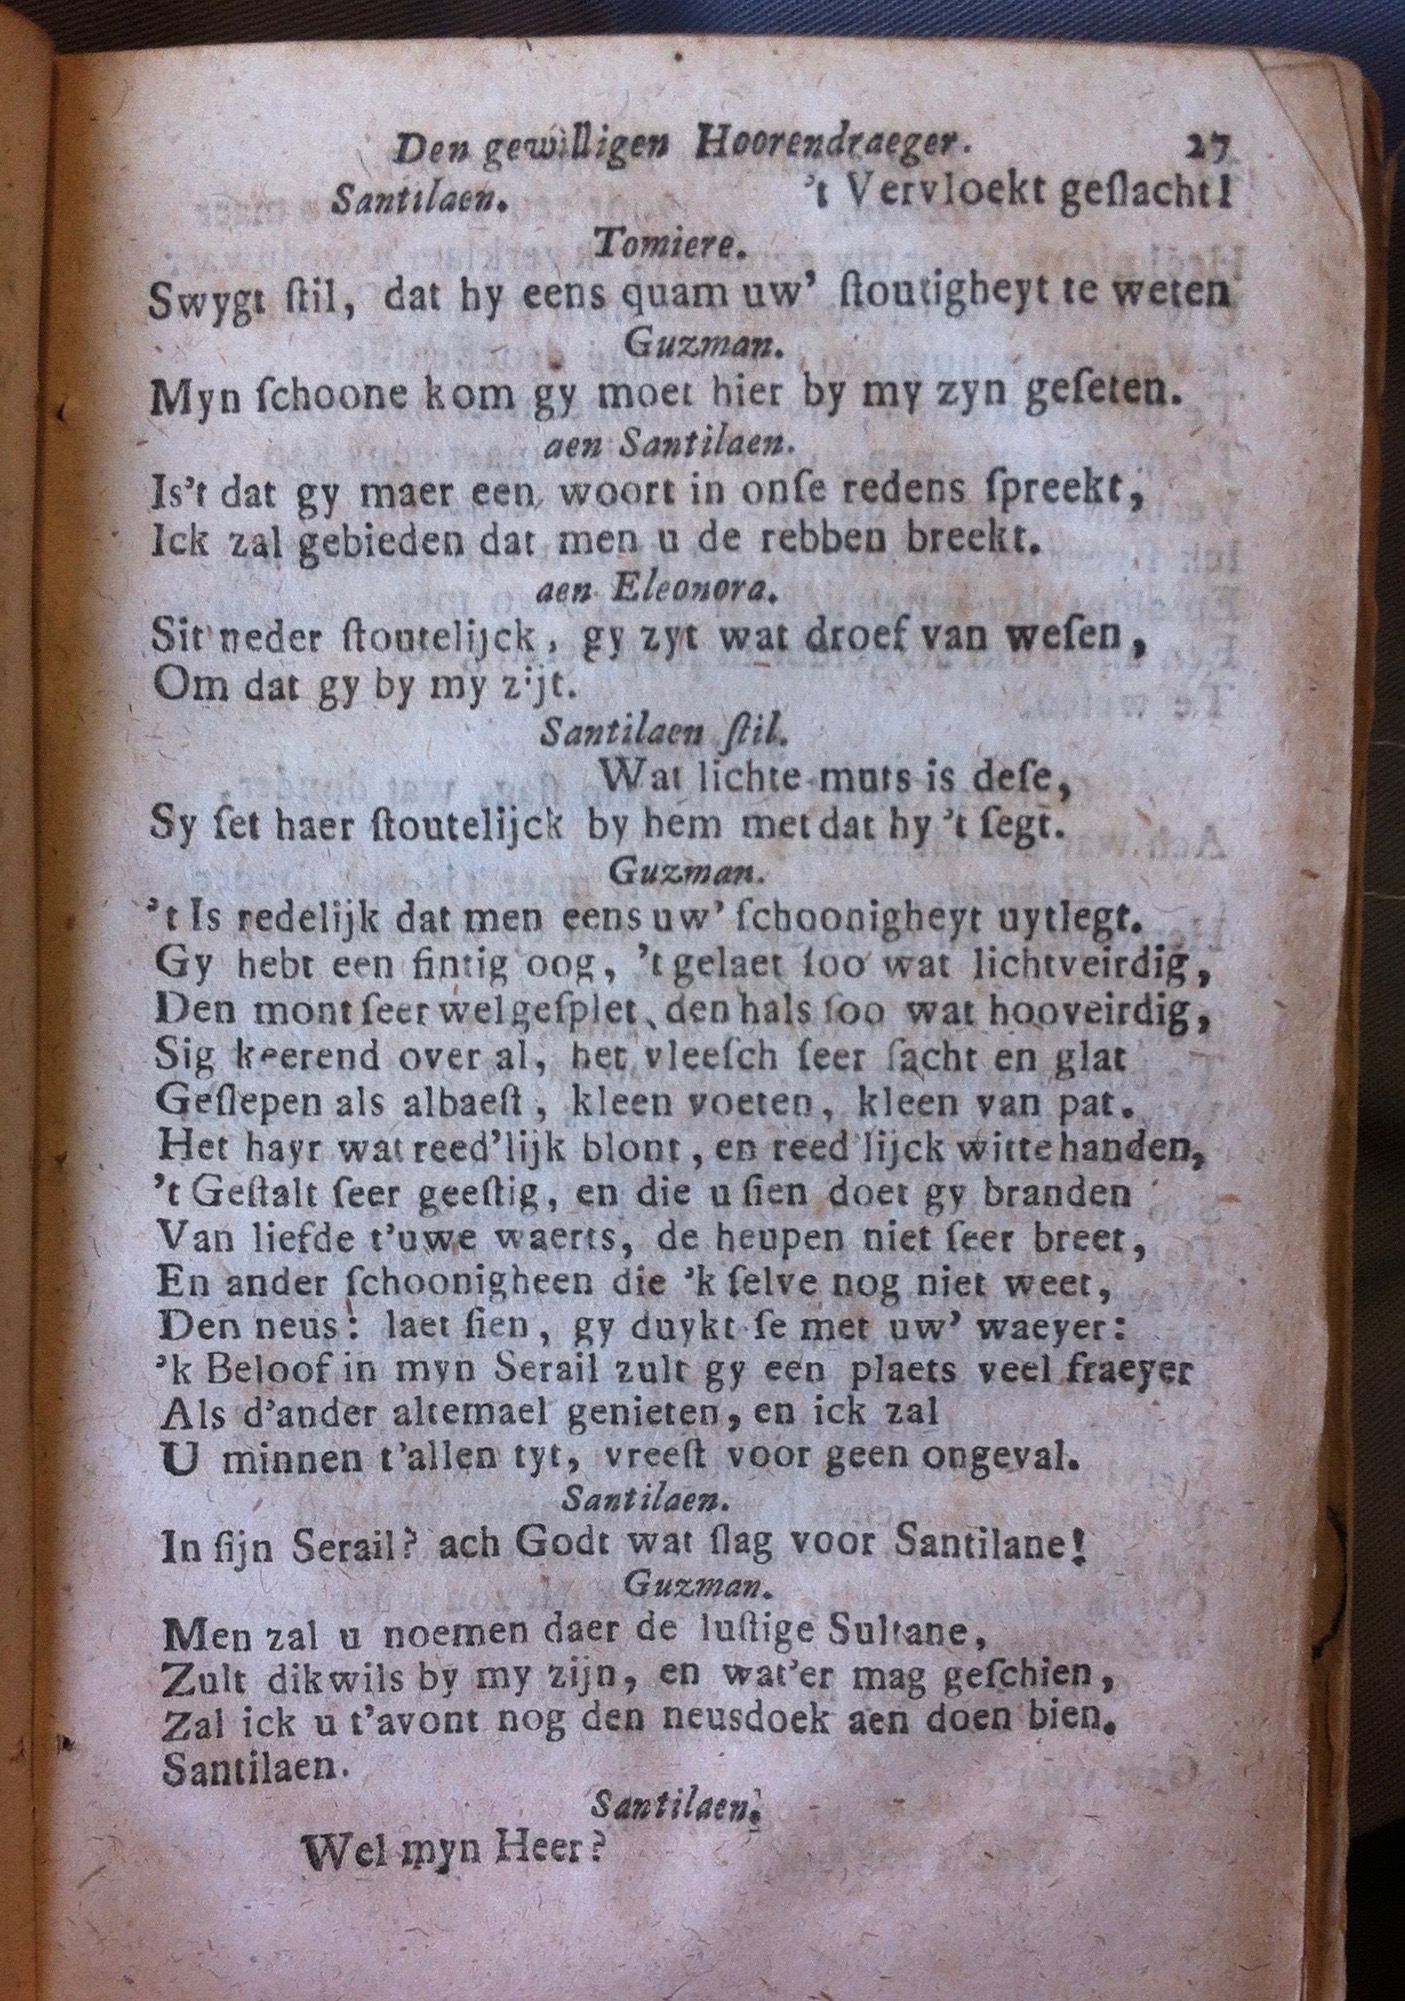 Den gewilligen Hoorendraeger. 27
Santilaen. 't Vervloekt geſlacht!
Tomiere.
Swygt ſtil, dat hy eens quam uw' ſtoutigheyt te weten
Guzman.
Myn ſchoone kom gy moet hier by my zyn geſeten.
aen Santilaen.
Is't dat gy maer een woort in onſe redens ſpreekt,
Ick zal gebieden dat men u de rebben breekt.
aen Eleonora.
Sit neder ſtoutelijck, gy zyt wat droef van weſen,
Om dat gy by my zijt.
Santilaen ſtil.
Wat lichte muts is deſe,
Sy ſet haer ſtoutelijck by hem met dat hy 't ſegt.
Guzman.
't Is redelijk dat men eens uw' ſchoonigheyt uytlegt.
Gy hebt een ſintig oog, 't gelaet ſoo wat lichtveirdig,
Den mont ſeer wel geſplet, den hals ſoo wat hooveirdig,
Sig keerend over al, het vleeſch ſeer ſacht en glat
Geſlepen als albaeſt, kleen voeten, kleen van pat.
Het hayr wat reed'lijk blont, en reed'lijck witte handen,
't Geſtalt ſeer geeſtig, en die u ſien doet gy branden
Van liefde t'uwe waerts, de heupen niet ſeer breet,
En ander ſchoonigheen die 'k ſelve nog niet weet,
Den neus! laet ſien, gy duykt ſe met uw' waeyer:
'k Beloof in myn Serail zult gy een plaets veel fraeyer
Als d'ander altemael genieten, en ick zal
U minnen t'allen tyt, vreeſt voor geen ongeval.
Santilaen.
In ſijn Serail? ach Godt wat ſlag voor Santilane!
Guzman.
Men zal u noemen daer de luſtige Sultane,
Zult dikwils by my zijn, en wat'er mag geſchien,
Zal ick u t'avont nog den neusdoek aen doen bien.
Santilaen.
Santilaen.
Wel myn Heer?